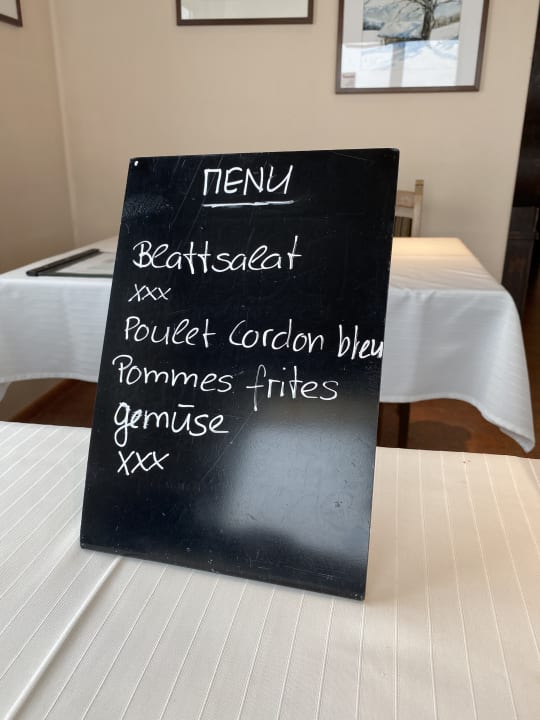 MENU
Blattsalat
xxx
Poulet Cordon bleu
Pommes frites
gemüse
xxx